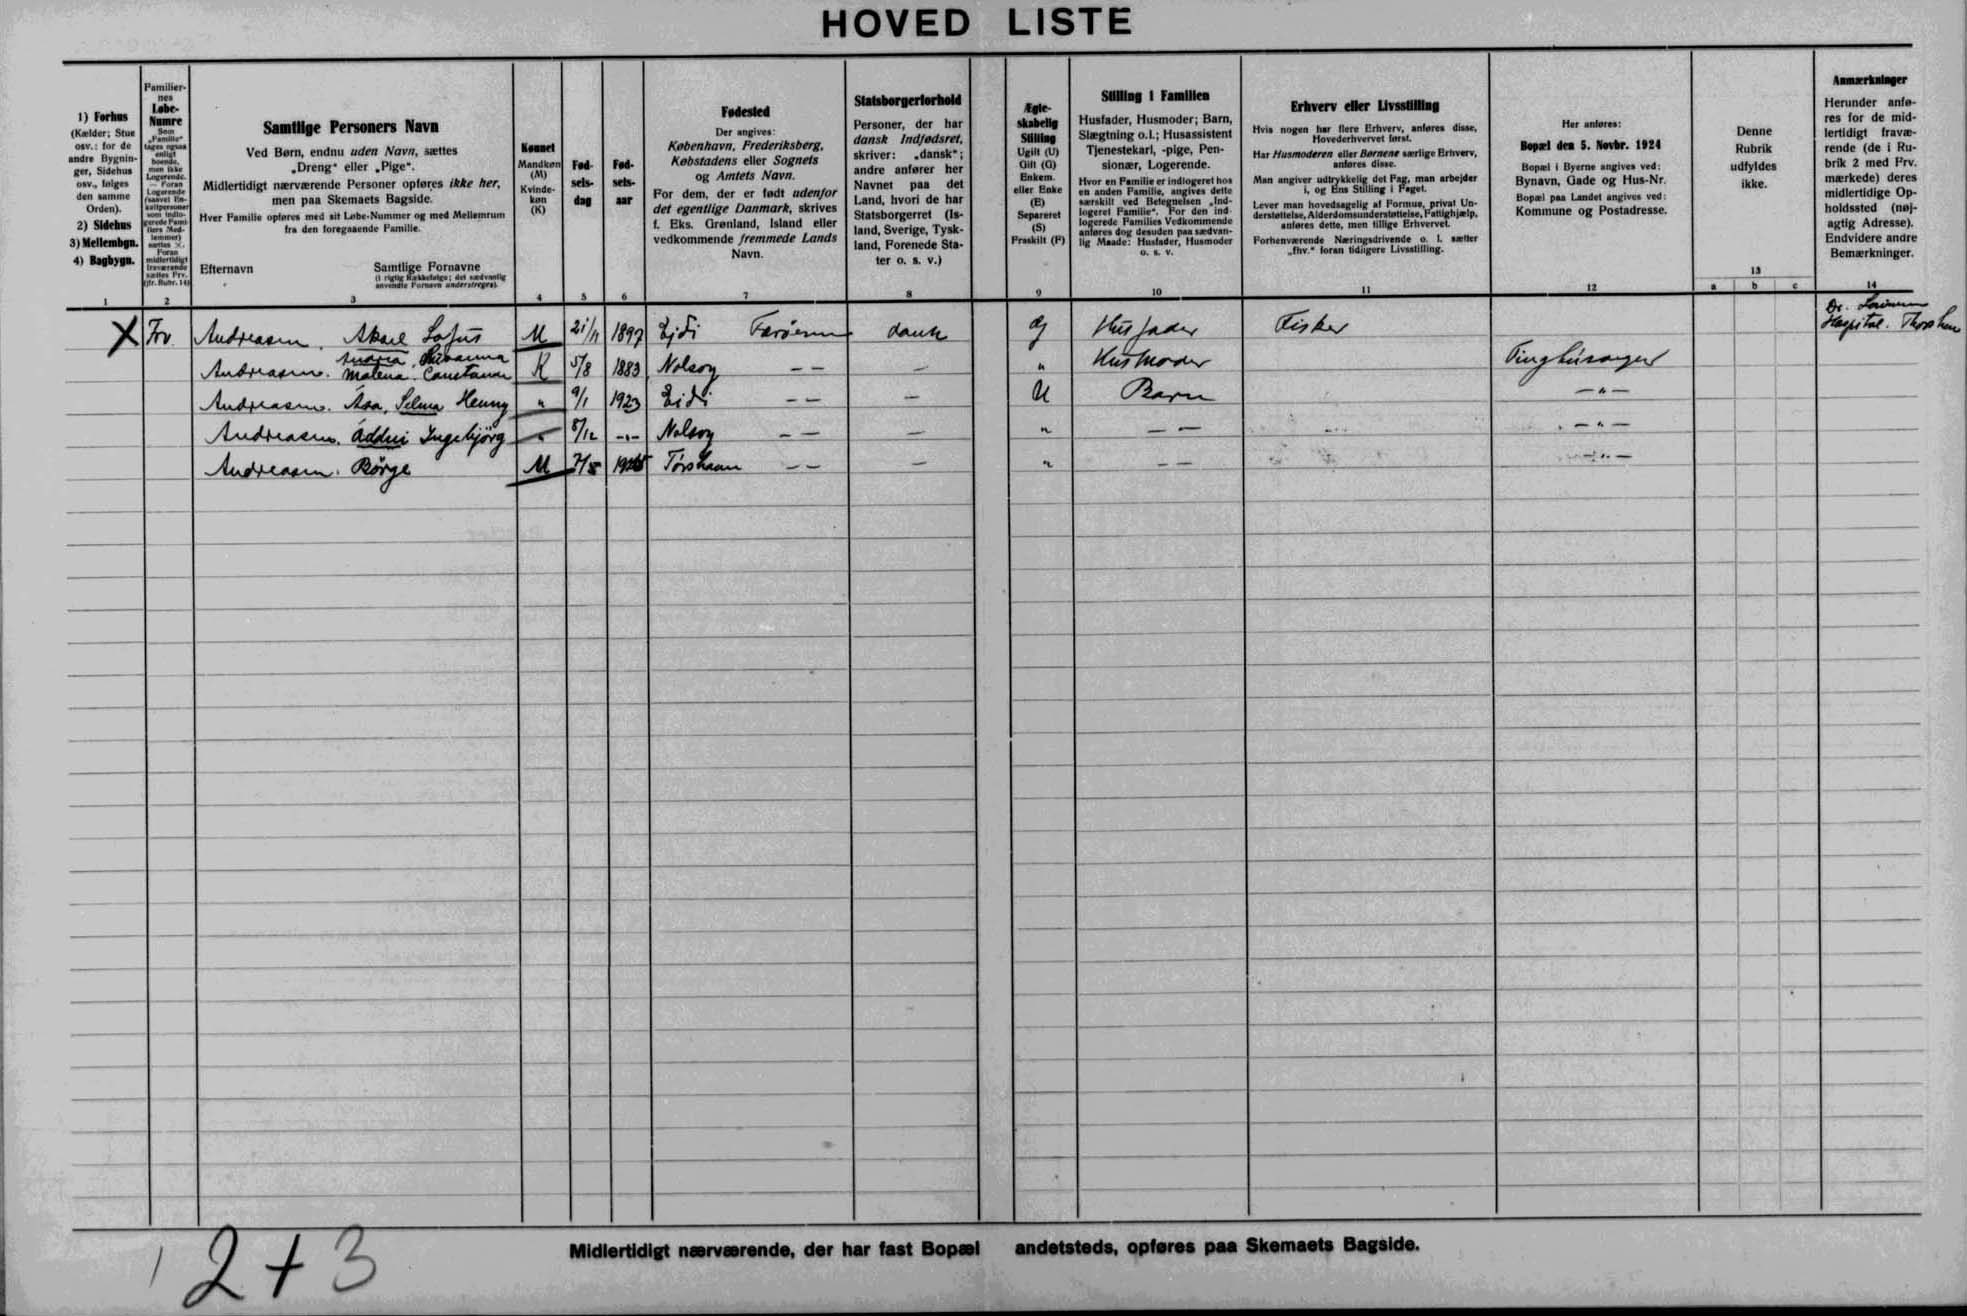 HOVED LISTE
1) Forhus
(Kælder; Stue
osv.: for de
andre Bygnin-
ger, Sidehus
osv., følges
den samme
Orden).
2) Sidehus
3) Mellembgn.
4) Bagbygn.
1
Familier-
nes
Løbe-
Numre
Som
„Familie“
tages ogsaa
enligt
boende,
men ikke
Logerende.
— Foran
Logerende
(saavel En-
keltpersoner
som indlo-
gerede Fami-
liers Med-
lemmer)
sættes ×.
Foran
midlertidigt
fraværende
sættes Frv.
(jfr. Rubr. 14)
2
Samtlige Personers Navn
Ved Børn, endnu uden Navn, sættes
„Dreng“ eller „Pige“.
Midlertidigt nærværende Personer opføres ikke her,
men paa Skemaets Bagside.
Hver Familie opføres med sit Løbe-Nummer og med Mellemrum
fra den foregaaende Familie.
Efternavn Samtlige Fornavne
(i rigtig Rækkefølge; det sædvanlig
anvendte Fornavn understreges).
3
Kønnet
Mandkøn
(M)
Kvinde-
køn
(K)
4
Fød-
sels-
dag
5
Fød-
sels-
aar
6
Fødested
Der angives:
København, Frederiksberg,
Købstadens eller Sognets
og Amtets Navn.
For dem, der er født udenfor
det egentlige Danmark, skrives
f. Eks. Grønland, Island eller
vedkommende fremmede Lands
Navn.
7
Statsborgerforhold
Personer, der har
dansk Indfødsret,
skriver: „dansk“;
andre anfører her
Navnet paa det
Land, hvori de har
Statsborgerret (Is-
land, Sverige, Tysk-
land, Forenede Sta-
ter o. s. v.)
8
Ægte-
skabelig
Stilling
Ugift (U)
Gift (G)
Enkem.
eller Enke
(E)
Separeret
(S)
Fraskilt (F)
9
Stilling i Familien
Husfader, Husmoder; Barn,
Slægtning o.l.; Husassistent
Tjenestekarl, -pige, Pen-
sionær, Logerende.
Hvor en Familie er indlogeret hos
en anden Familie, angives dette
særskilt ved Betegnelsen „Ind-
logeret Familie“. For den ind-
logerede Families Vedkommende
anføres dog desuden paa sædvan-
lig Maade: Husfader, Husmoder
o. s. v.
10
Erhverv eller Livsstilling
Hvis nogen har flere Erhverv, anføres disse,
Hovederhvervet først.
Har Husmoderen eller Børnene særlige Erhverv,
anføres disse.
Man angiver udtrykkelig det Fag, man arbejder
i, og Ens Stilling i Faget.
Lever man hovedsagelig af Formue, privat Un-
derstøttelse, Alderdomsunderstøttelse, Fattighjælp,
anføres dette, men tillige Erhvervet.
Forhenværende Næringsdrivende o. l. sætter
„fhv.“ foran tidligere Livsstilling.
11
Her anføres:
Bopæl den 5. Novbr. 1924
Bopæl i Byerne angives ved:
Bynavn, Gade og Hus-Nr.
Bopæl paa Landet angives ved:
Kommune og Postadresse.
12
Denne
Rubrik
udfyldes
ikke.
13
a b c
Anmærkninger
Herunder anfø-
res for de mid-
lertidigt fravæ-
rende (de i Ru-
brik 2 med Frv.
mærkede) deres
midlertidige Op-
holdssted (nøj-
agtig Adresse).
Endvidere andre
Bemærkninger.
14
X Frv. Andreasen, Aksel Lofus M 21/11 1897 Ejdi Færøerne dansk G Husfader Fisker Hospital. Thorshavn
Andrea Susanna
Andreasen. Malena. Constance K 5/8 1883 Nolsoy — — — " Husmoder
Andreasen. Ása, Selma Henny " 9/1 1923 Eidi — — — U Barn — " —
Andreasen, Ingebjörg " 8/12 -"- Nolsoy — — — " — — — " —
Andreasen. Börge M 7/5 Torshavn — — — " — — — " —
Midlertidigt nærværende, der har fast Bopæl andetsteds, opføres paa Skemaets Bagside.
2 + 3